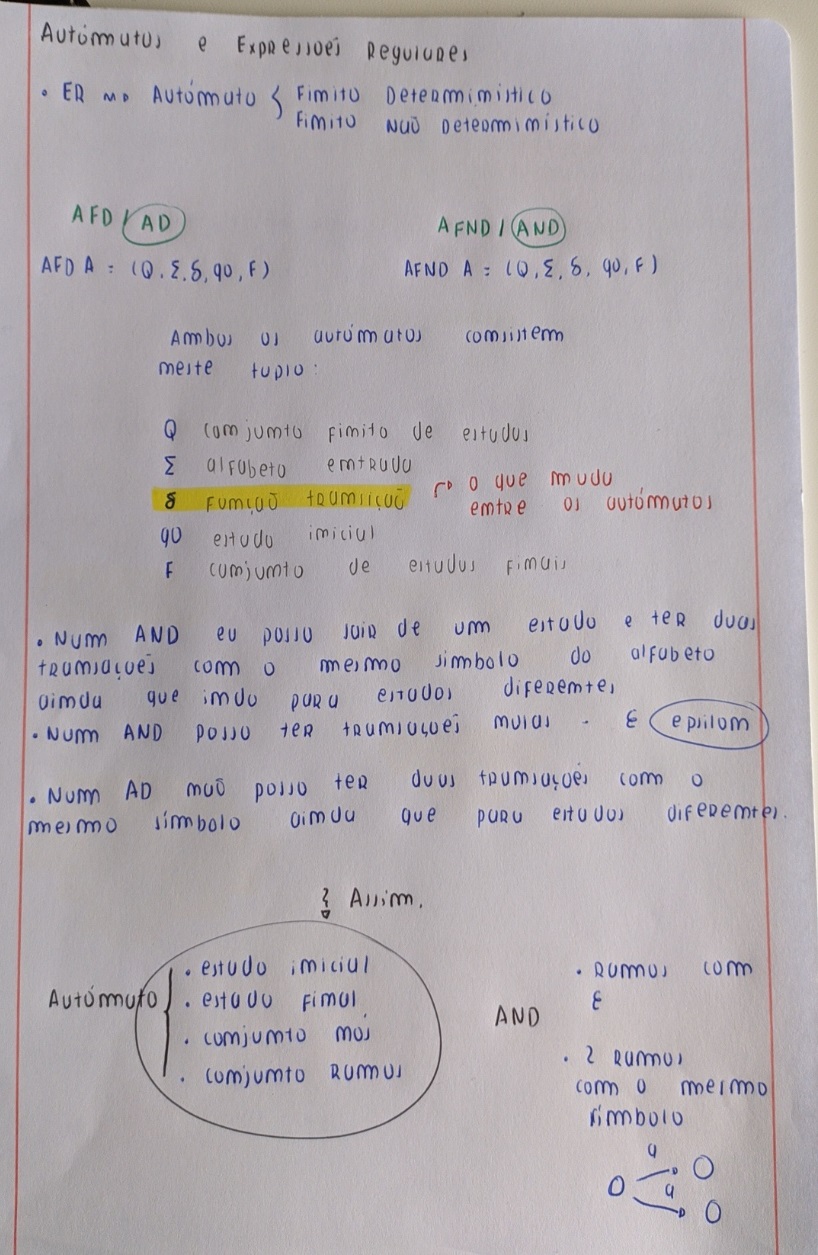 Autómatos e Expressões Regulares
• ER → Autómato { Finito Determinístico
Finito Não Determinístico
AFD / AD
AFND / AND
AFD A = (Q, Σ, δ, q0, F)
AFND A = (Q, Σ, δ, q0, F)
Ambos os autómatos consistem
neste tuplo:
Q conjunto finito de estados
Σ alfabeto entrada
δ função transição → o que muda
entre os autómatos
q0 estado inicial
F conjunto de estados finais
• Num AND eu posso sair de um estado e ter duas
transações com o mesmo símbolo do alfabeto
ainda que indo para estados diferentes
• Num AND posso ter transações nulas - ε epsilon
• Num AD não posso ter duas transações com o
mesmo símbolo ainda que para estados diferentes.
Assim,
Autómato
• estado inicial
• estado final
• conjunto nós
• conjunto ramos
AND
• Ramos com
ε
• 2 ramos
com o mesmo
símbolo
a
a